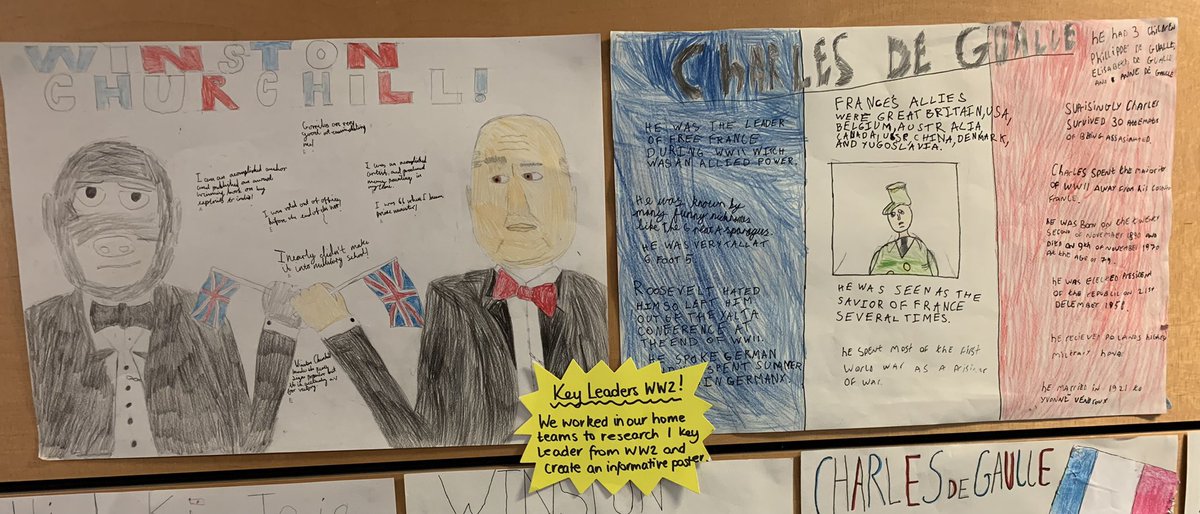 WINSTON
CHURCHILL!
Gorillas are very
good at
me!
I am an author
and published an
winning book on my
to india!
I was voted out of office
before the end of the war!
I nearly didn't make
it into military school!
I was an
artist, and produced
many painting in
my time.
I was 65 when I became
prime minister!
Winston Churchill
CHARLES DE GUALLE
HE WAS THE LEADER
OF FREE FRANCE
DURING WWII WITCH
WAS AN ALLIED POWER.
He was known by
many funny nicknames
like the Great Asparagus.
HE WAS VERY TALL AT
6 FOOT 5
ROOSEVELT HATED
HIM SO LEFT HIM
OUT OF THE YALTA
CONFERENCE AT
THE END OF WWII.
HE SPOKE GERMAN
SPENT SUMMER
IN GERMANY.
FRANCE'S ALLIES
WERE GREAT BRITAIN, USA,
BELGIUM, AUSTRALIA,
CANADA, USSR, CHINA, DENMARK,
AND YUGOSLAVIA.
HE WAS SEEN AS THE
SAVIOR OF FRANCE
SEVERAL TIMES.
he spent most of the first
world war as a prisoner
of war.
he HAD 3 children
Philippe de GUALLE,
Elisabeth de GUALLE
AND ANNE DE GAULLE
Surprisingly Charles
survived 30 attempts
of being assasinated.
Charles spent the majority
of WWII away from his country
France.
he was born on the twenty
second of November 1890 and
died on 9th of November 1970
at the age of 79.
he was elected president
of the republic on 21st
December 1958.
he reciever Polands highest
military honor
he married in 1921 to
Yvonne Vendroux
Key Leaders WW2!
We worked in our home
teams to research 1 key
Leader from WW2 and
create an informative poster.
WINSTON
CHARLES de GAULLE